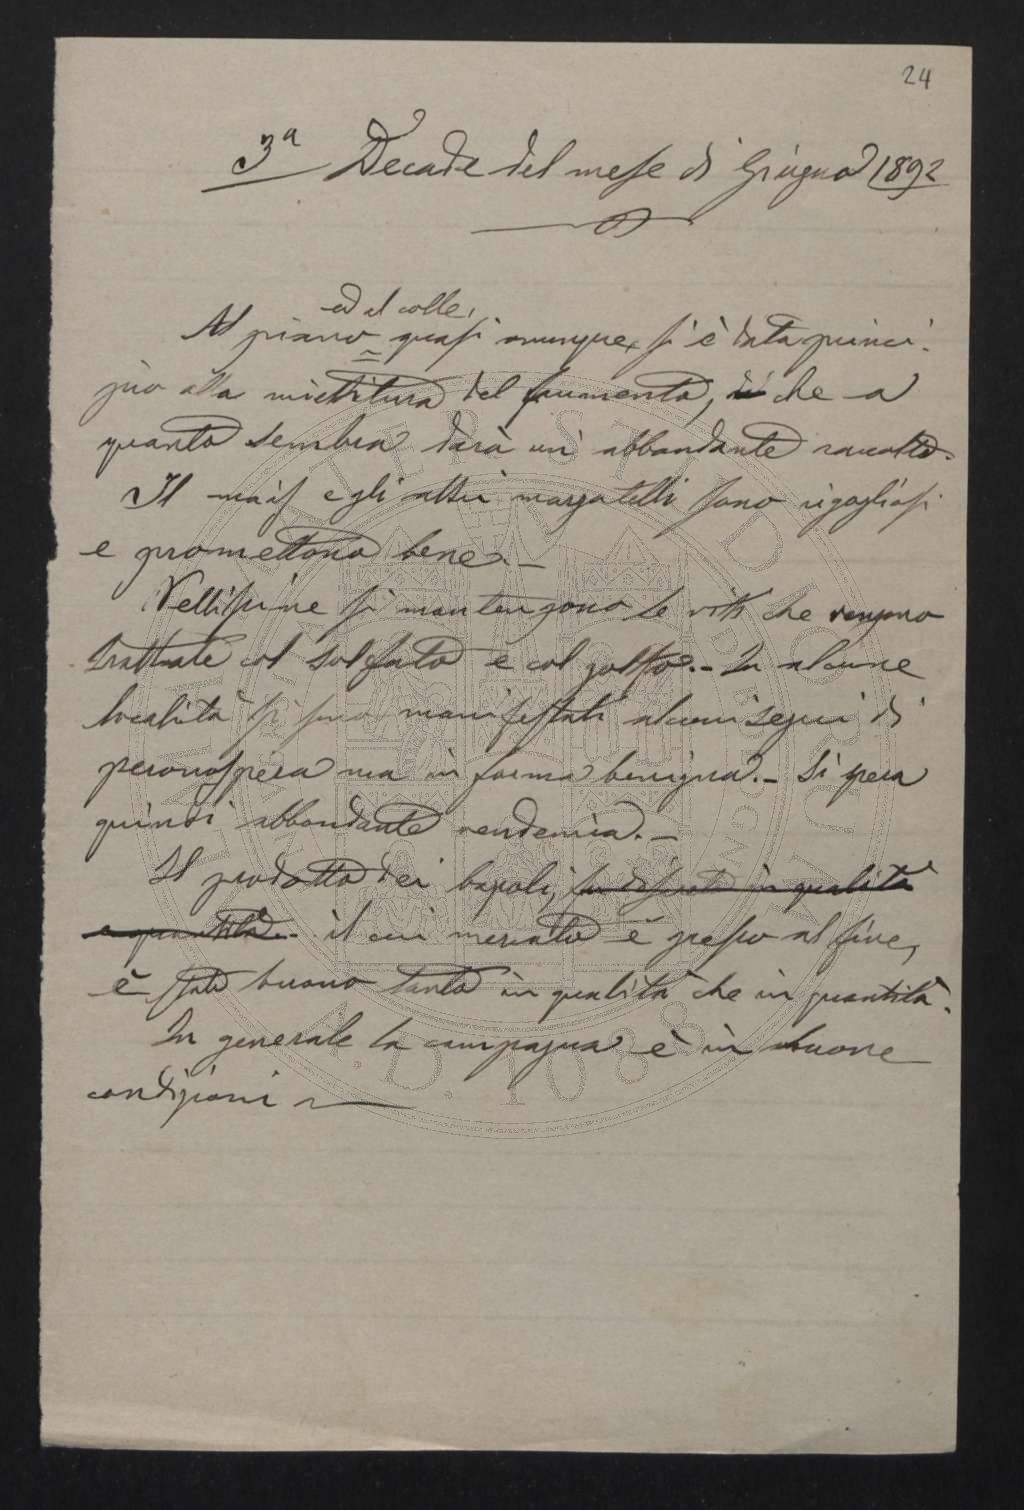 24
3ª Decade del mese di Giugno 1892
ed al colle,
Al piano quasi ovunque, si è data princi-
pio alla mietitura del frumento, di che a
quanto sembra darà un' abbondante raccolto.
Il mais e gli altri marzatelli sono rigogliosi
e promettono bene. —
Bellissime si mantengono le viti che vengono
trattate col solfato e col zolfo. - In alcune
località si sono manifestati alcuni segni di
peronospera ma in forma benigna. - Si spera
quindi abbondante vendemia. —
Il prodotto dei bozzoli, in qualità
e quantità. il cui mercato è presso al fine,
è stato buono tanto in qualità che in quantità.
In generale la campagna è in buone
condizioni
A.D. 1088